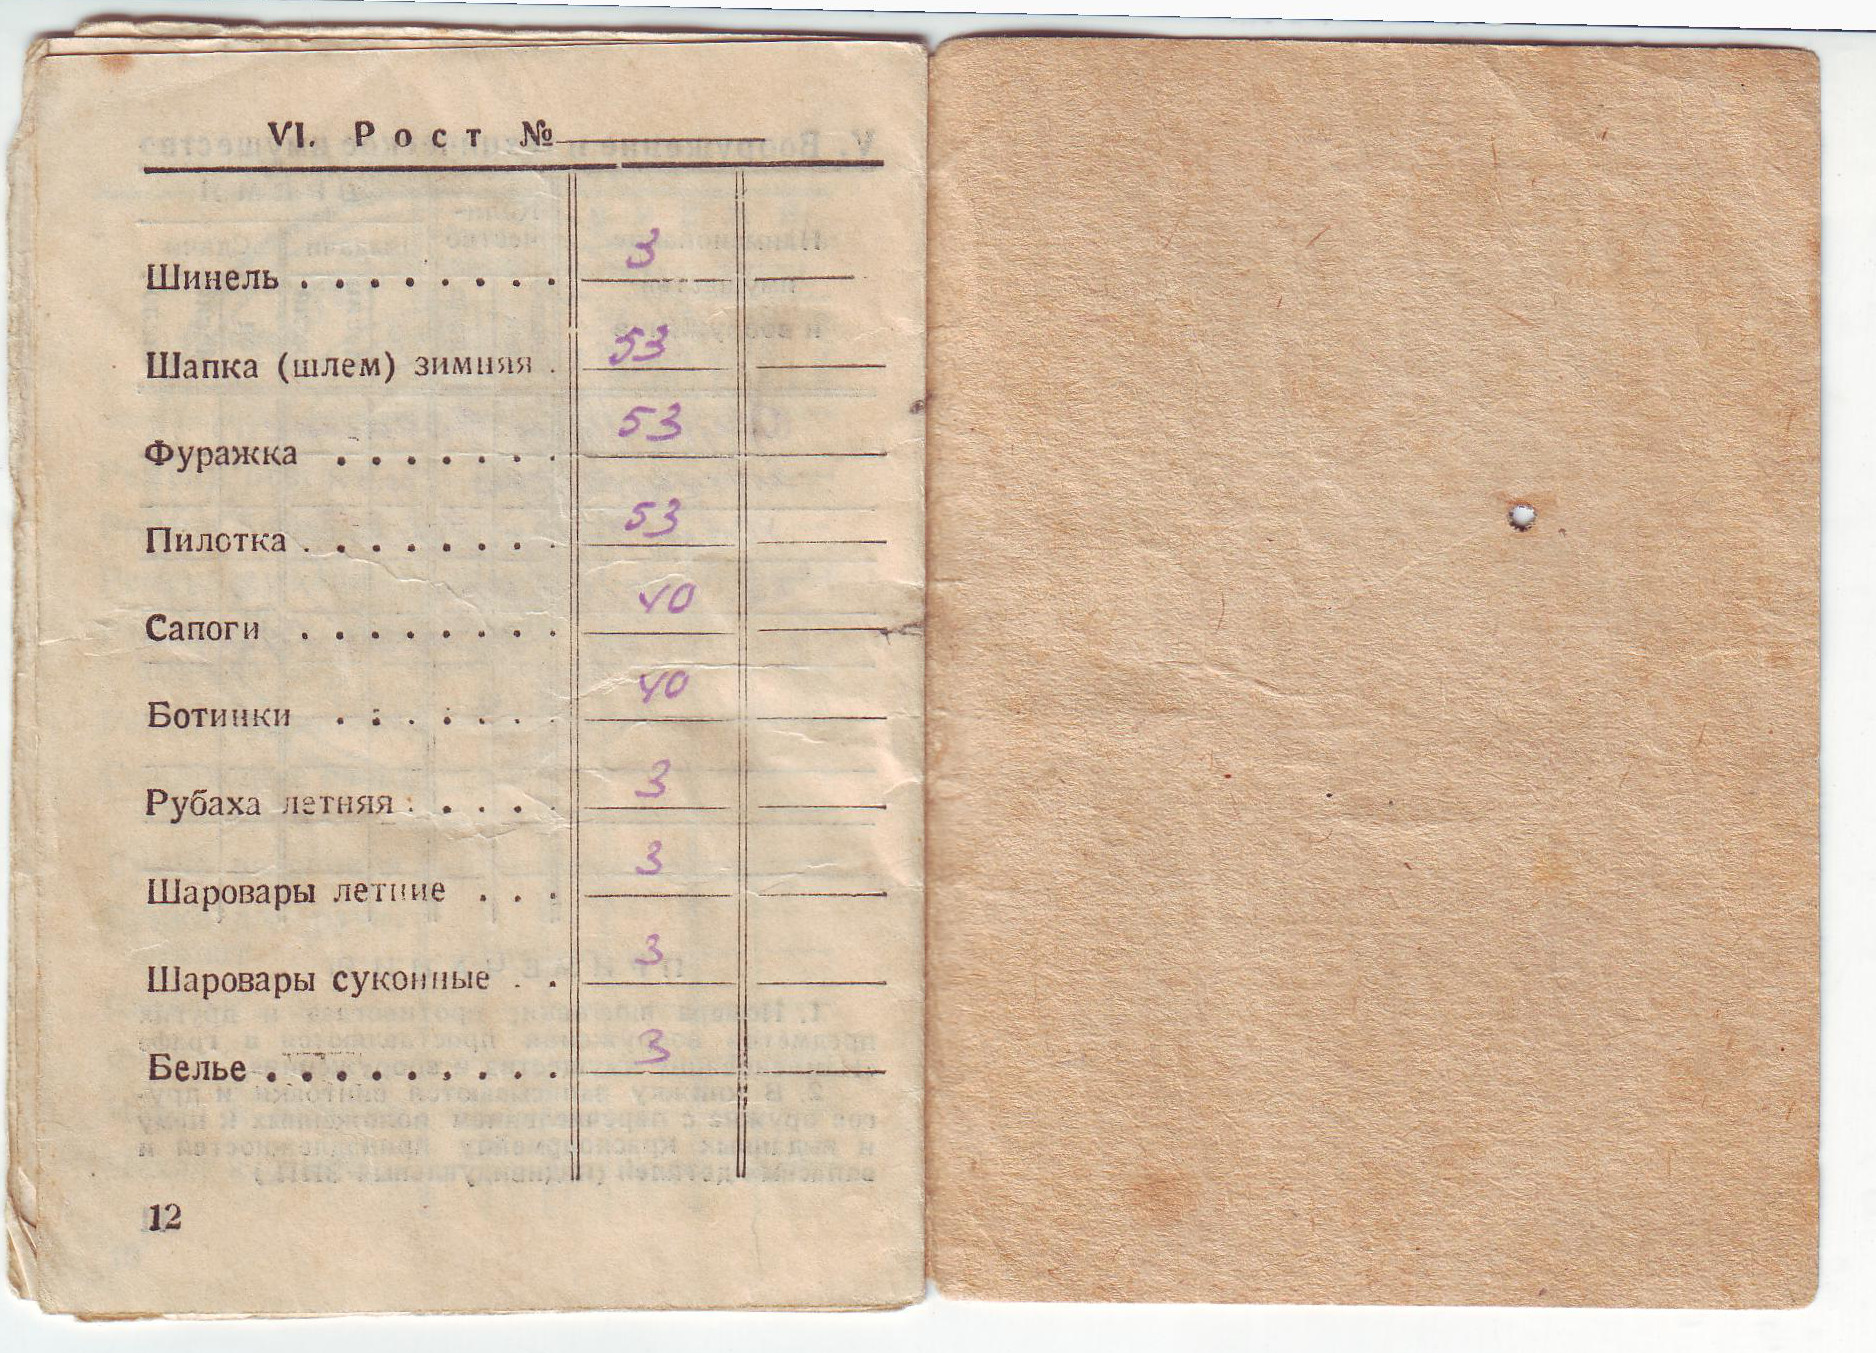 VI. Рост №
Шинель . . . . . . . . 3
Шапка (шлем) зимняя . 53
Фуражка . . . . . . . 53
Пилотка . . . . . . . . 53
Сапоги . . . . . . . . 40
Ботинки . . . . . . . 40
Рубаха летняя . . . . . 3
Шаровары летние . . . 3
Шаровары суконные . . 3
Белье . . . . . . . . . 3
12